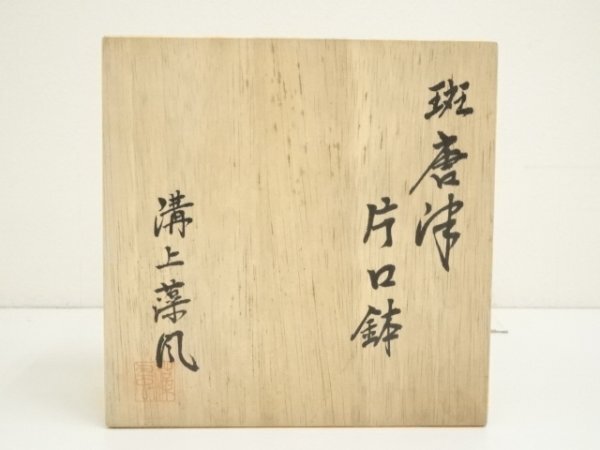 斑唐津
片口鉢
溝上藻風